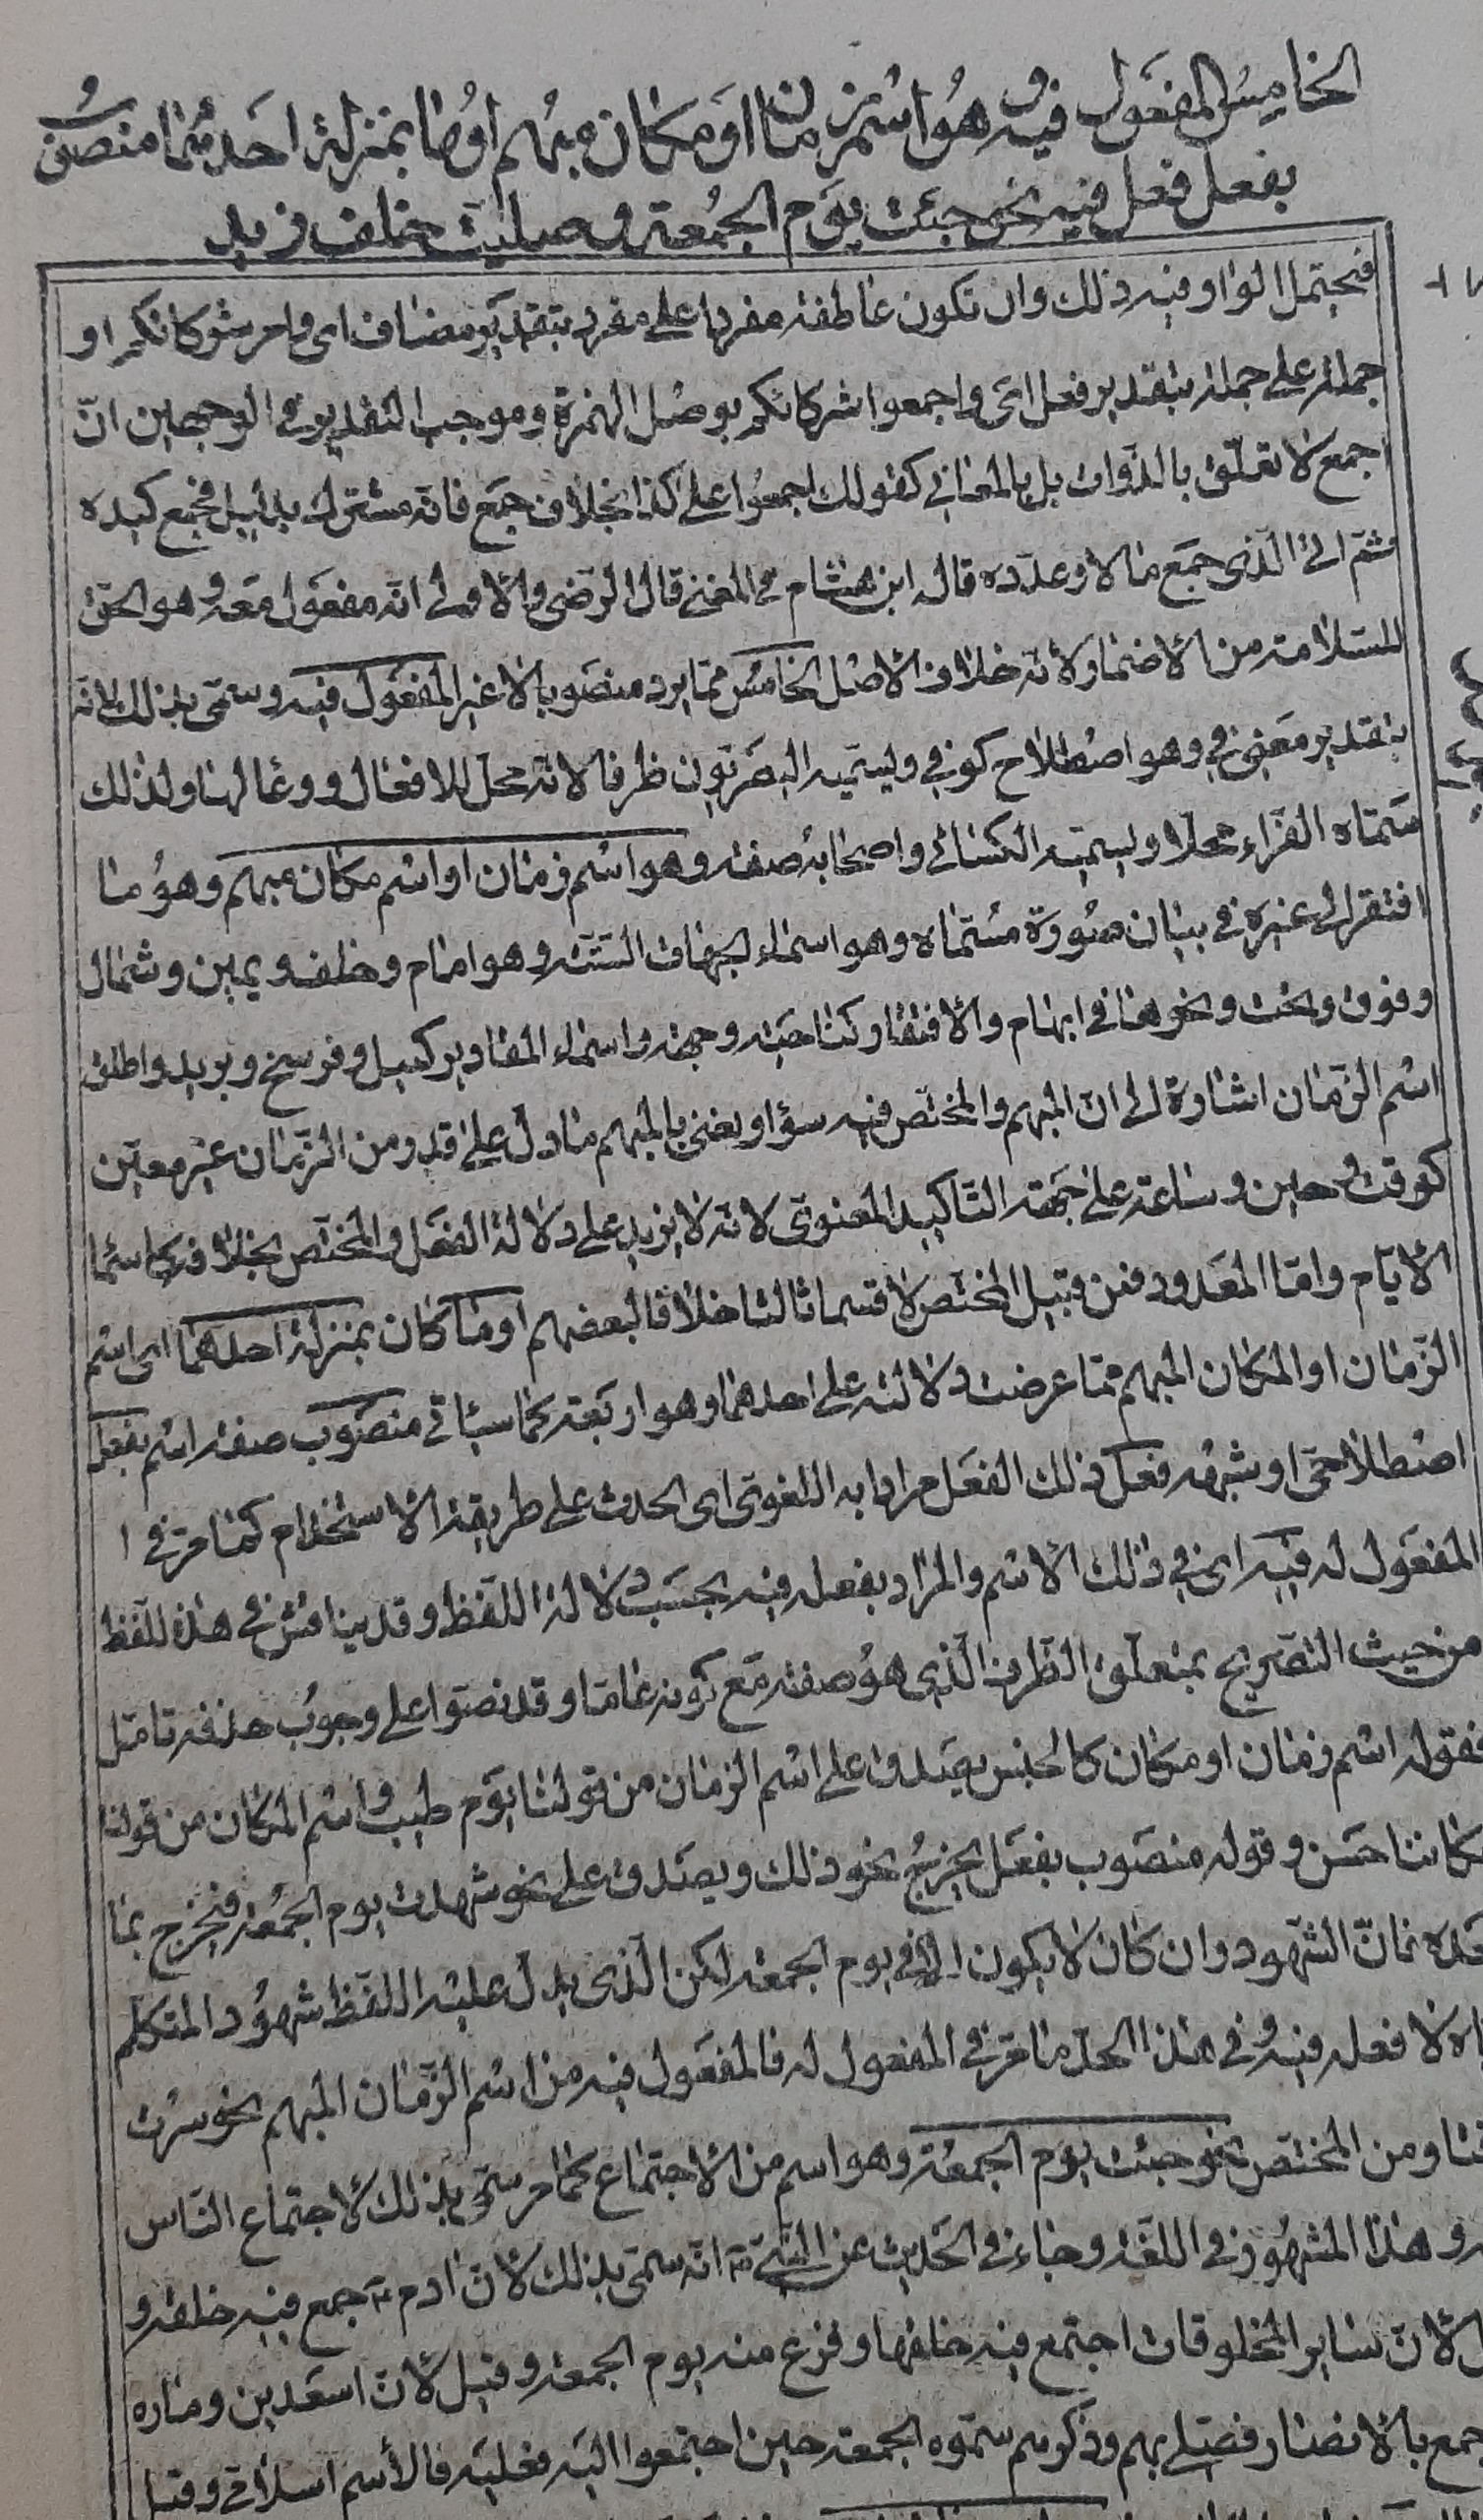 الخامس المفعول فيه وهو اسم زمان او مكان مبهم او ما بمنزلة احدهما منصوب
بفعل فعل فيه نحو جئت يوم الجمعة وصليت خلف زيد
فيحتمل الواو فيه ذلك وان تكون عاطفة مفردا على مفرد بتقدير مضاف اى وامر شركائكم او
جملة على جملة بتقدير فعل اى واجمعوا شركائكم بوصل الهمزة وموجب التقدير فى الوجهين انّ
اجمع لا تعلّق بالذّوات بل بالمعانى كقولك اجمعوا على كذا بخلاف جمع فانّه مشترك بدليل فجمع كيده
ثمّ اتى الّذى جمع مالا وعدّده قاله ابن هشام فى المغنى قال الرّضى والاولى انّه مفعول معه وهو الحقّ
للسّلامة من الاضمار ولانّه خلاف الاصل الخامس ممّا يرد منصوبا لا غير المفعول فيه وسمّى بذلك لانّه
بتقدير معنى فى وهو اصطلاح كوفى ويسمّيه البصريّون ظرفا لانّه محلّ للافعال ووعا لها ولذلك
سمّاه الفرّاء محلّا ويسمّيه الكسائى واصحابه صفة وهو اسم زمان او اسم مكان مبهم وهو ما
افتقر الى غيره فى بيان صورة مسمّاه وهو اسماء الجهات الستّة وهو امام وخلف ويمين وشمال
وفوق وتحت ونحوها فى ابهام والافتقار كناحية وجهة واسماء المقادير كميل وفرسخ وبريد واطلق
اسم الزّمان اشارة الى انّ المبهم والمختصّ فيه سواء ويعنى بالمبهم ما دلّ على قدر من الزّمان غير معيّن
كوقت وحين وساعة على جهة التّاكيد المعنوى لانّه لا يزيد على دلالة الفعل والمختصّ بخلافه كاسماء
الايّام وامّا المعدود فمن قبيل المختصّ لا قسما ثالثا خلافا لبعضهم او ما كان بمنزلة احدهما اى اسم
الزّمان او المكان المبهم ممّا عرضت دلالته على احدهما وهو اربعة كما سيأتى منصوب صفة اسم بفعل
اصطلاحى او شبهه فعل ذلك الفعل مرادا به اللغوى اى الحدث على طريقة الاستخدام كما مرّ فى
المفعول له فيه اى فى ذلك الاسم والمراد بفعله فيه بحسب دلالة اللّفظ وقد يناقش فى هذه اللّفظ
من حيث التّصريح بمتعلّق الظّرف الّذى هو صفة مع كونه عامّا وقد نصّوا على وجوب حذفه تامّل
فقوله اسم زمان او مكان كالجنس يصدق على اسم الزمان من قولنا يوم طيب واسم المكان من قولنا
مكاننا حسن وقوله منصوب بفعل يخرج نحو ذلك ويصدق على نحو شهدت يوم الجمعة فيخرج بما
بعده فانّ الشّهود وان كان لا يكون الا فى يوم الجمعة لكن الّذى يدل عليه اللفظ شهود المتكلّم
ايّاه لا فعله فيه وفى هذا الحد ما مرّ فى المفعول له فالمفعول فيه من اسم الزّمان المبهم نحو سرت
ومن المختصّ نحو جئت يوم الجمعة وهو اسم من الاجتماع كما مر سمّى بذلك لاجتماع النّاس
وهذا المشهور فى اللّغة وجاء فى الحديث عن النّبى انّه سمّى بذلك لانّ ادم جمع فيه خلقه و
لانّ ساير المخلوقات اجتمع فيه خلقها وفرغ منه يوم الجمعة وقيل لانّ اسعد بن زراره
جمع بالانصار فصلّى بهم وذكّرهم سمّوه الجمعة حين اجتمعوا اليه فعليه فالأسم اسلامى وقيل